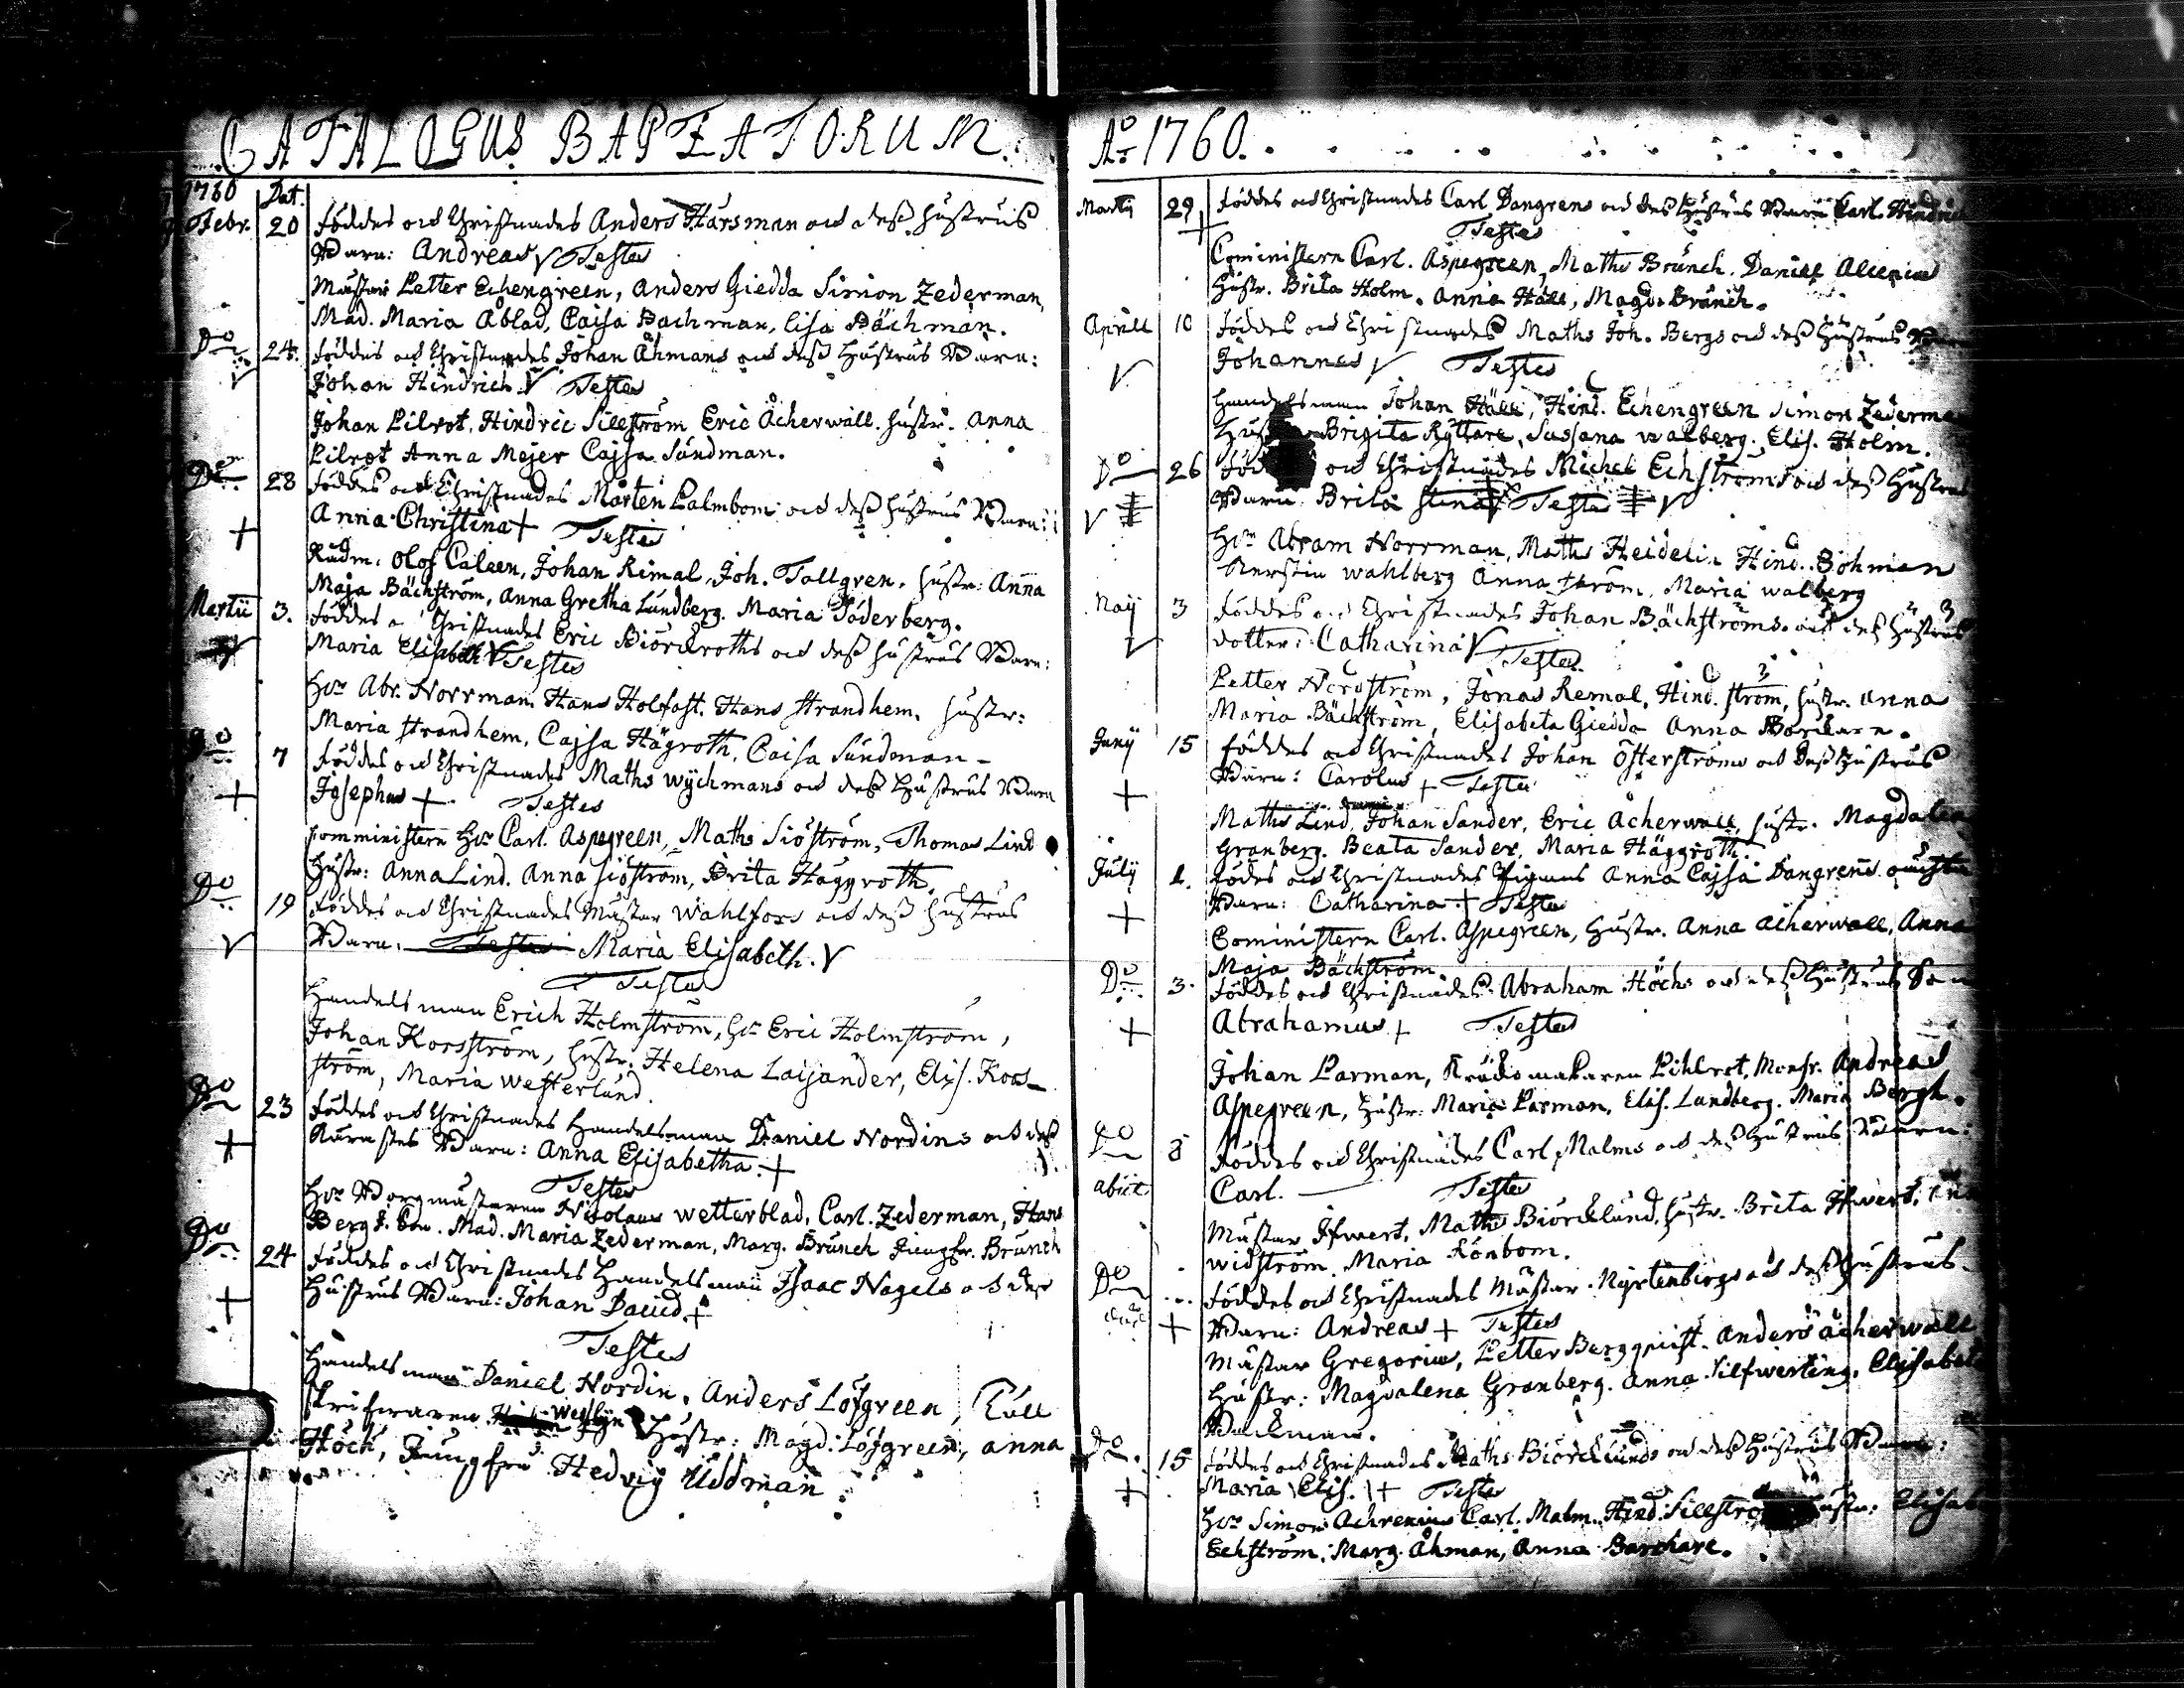 CATALOGUS BAPTATORUM.
1760 Dat.
Febr. 20 Föddes och Christnades Anders Harsman och dess hustrus
Barn: Andreas V Testes
Mäster Petter Echengreen, Anders Giedda Simon Zederman,
Mad. Maria Åblad, Caisa Bachman, Lisa Bächman.
Do 24. Föddes och Christnades Johan Åhmans och dess Hustrus Barn:
V Johan Hindrich V Testes
Johan Pilrot, Hindric Sillström Eric Åcherwall. hustr. Anna
Pilrot Anna Mejer Cajsa Sundman.
Do 28 Föddes och Christnades Mårten Palmbom och dess hustrus Barn:
+ Anna Christina + Testes
Rådm. Olof Caleen, Johan Rimal, Joh. Tallgren. hustr: Anna
Maja Bächström, Anna Gretha Lundberg. Maria Söderberg.
Martii 3. Föddes o Christnades Eric Biörckroths och dess hustrus Barn:
Maria Elisabeth V Testes
Hr Abr. Norrman. Hans Holfast. Hans Strandhem. hustr:
Maria Strandhem, Cajsa Hägroth, Caisa Sundman
Do 7 Föddes och Christnades Maths Wychmans och dess Hustrus Barn
+ Josephus + Testes
Comministern Hr Carl Aspegreen, Maths Siöström, Thomas Lind
Hustr: Anna Lind. Anna Siöström, Brita Häggroth.
Do 19 Föddes och Christnades Mäster Wahlfors och dess hustrus
V Barn. Testes Maria Elisabeth. V
Testes
Handelsman Erich Holmström, Hr Eric Holmström,
Johan Korsström, hustr. Helena Laijander, Elis. Kors-
ström, Maria Westerlund.
Do 23 Föddes och Christnades Handelsman Daniel Nordins och dess
+ Kärestes Barn: Anna Elisabetha +
Testes
Hr Borgmästaren Nicolaus Wetterblad, Carl. Zederman, Hans
Berg. Mad. Maria Zederman, Marg. Brunch Jungfr. Brunch
Do 24 Föddes och Christnades Handelsman Isaac Nagels och dess
+ Hustrus Barn: Johan David +
Testes
Handelsman Daniel Nordin, Anders Löfgreen, Tull
Skrifwaren Weslyn Hustr: Magd: Löfgreen, Anna
Höck, Jungfru Hedvig Uddman
Ao 1760.
Martij 29 Föddes och Christnades Carl Dangrens och des Hustrus Barn Carl. Hindrich
+ Testes
Cominístern Carl. Aspegreen, Maths Brunch. Daniel Alcenius
Hustr. Brita Holm. Anna Häll, Magd. Brunch.
Aprill 10 Föddes och Christnades Maths Joh. Bergs och dess Hustrus
V Johannes V Testes
Handelsman Johan Häll, Hind. Echengreen Simon Zederman
Brigita Ryttare, Sussana Walberg. Elis. Holm.
Do 26 och Christnades Michel Echströms och dess Hustrus
V Barn Brita Stina V Testes V
Hr Abram Norrman, Maths Heidelin Hind. Böhmen
Kerstin Wahlberg Anna Ström, Maria Walberg
Maij 3 Föddes och Christnades Johan Bächströms och des Hustrus
V dotter: Catharina V Testes
Petter Nordström, Jonas Remal, Hind. Ström, hustr. Anna
Maria Bächström, Elisabeta Giedda Anna Borckare.
Junij 15 Föddes och Christnades Johan Österströms och dess Hustrus
+ Barn: Carolus + Testes
Maths Lind, Johan Sander, Eric Åcherwall, hustr. Magdalen
Granberg. Beata Sander, Maria Häggroth.
Julij 1. Födes och Christnades Pigans Anna Cajsa Dangrens
+ Barn: Catharina + Testes
Cominístern Carl. Aspegreen, Hustr. Anna Åcherwall, Anna
Maja Bächström.
Do 3. Föddes och Christnades Abraham Höchs och des Hustrus Son
+ Abrahamus + Testes
Johan Parman, Krukomakaren Pihlrot, Monsr. Andreas
Aspegreen, Hustr: Maria Parman, Elis. Lundberg. Maria Bergh.
Do 8 Föddes och Christnades Carl Malms och des Hustrus Barn:
abiit Carl. Testes
Mäster Ifwert, Maths Biörcklund, hustr. Brita Ifwert,
Widström. Maria Rönbom.
Do Föddes och Christnades Mäster Nyrtenbergs och dess Hustrus
+ Barn: Andreas + Testes
Mäster Gregorius, Petter Bergqwist. Anders Åcherwall
Hustr: Magdalena Granberg. Anna Silfwerling, Elisabet
Backman.
Do. 15 Föddes och Christnades Maths Biörcklunds och dess Hustrus Barn:
+ Maria Elis. + Testes
Hr Simon Achrenius Carl. Malm. Hind. Sillström Hustr: Elisab
Echström. Marg. Åhman, Anna Barchare.